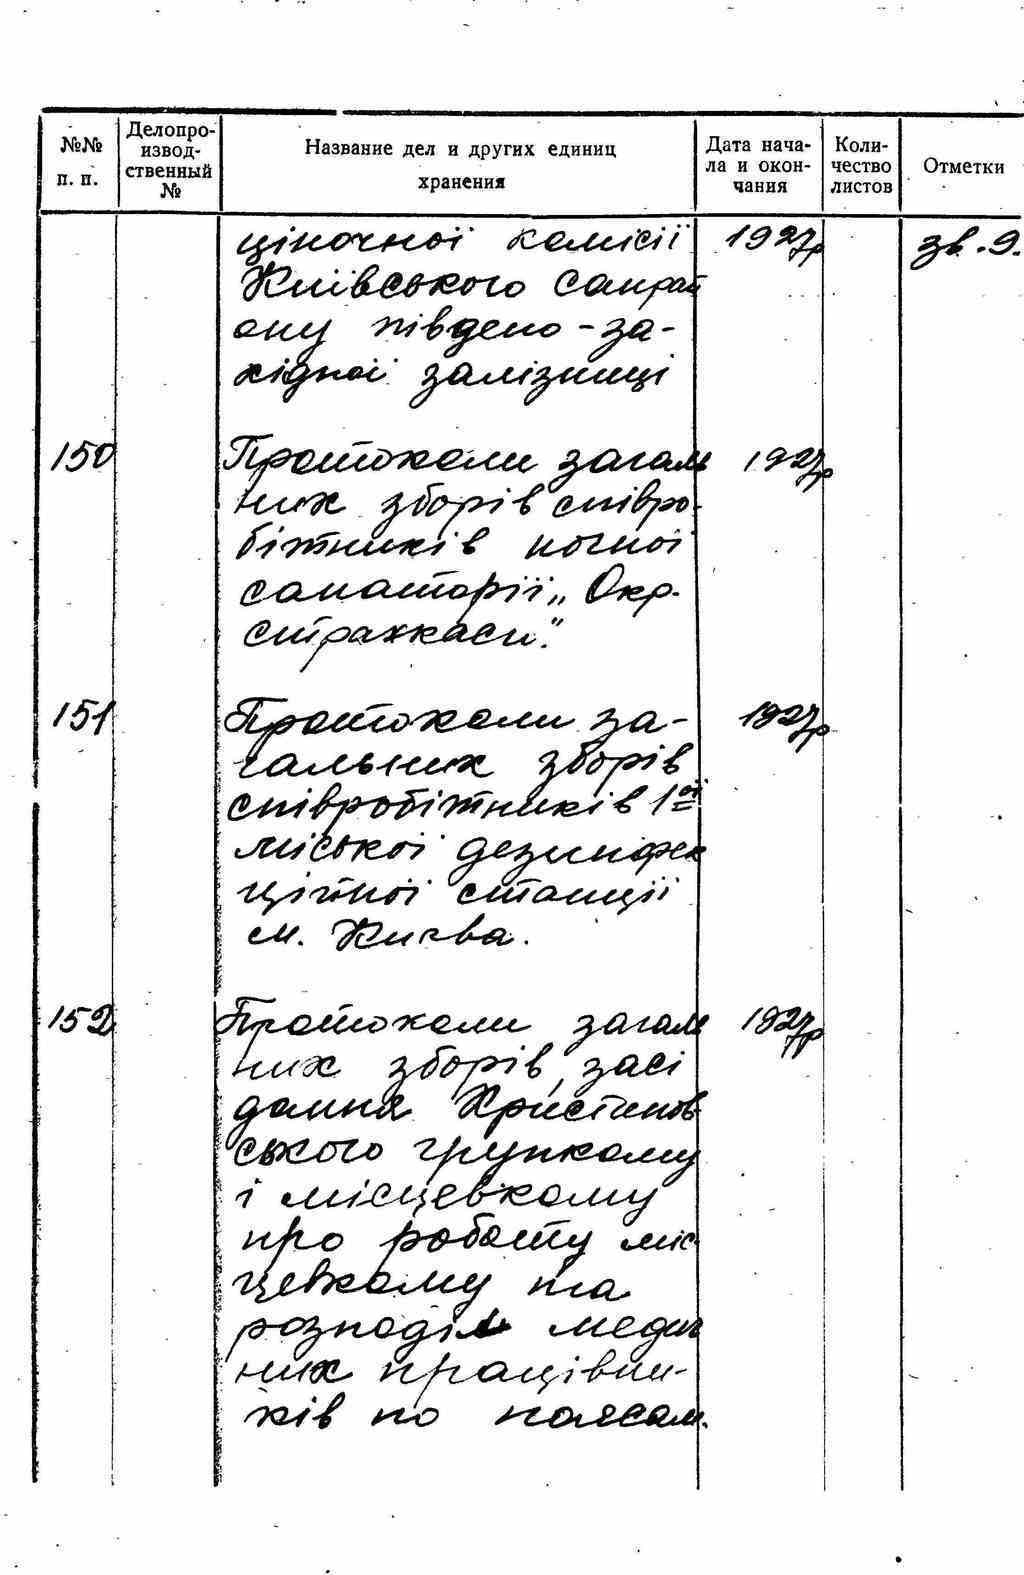 №№ п. п.
Делопро-
извод-
ственный
№
Название дел и других единиц
хранения
Дата нача-
ла и окон-
чания
Коли-
чество
листов
Отметки
ціночної комісії 1927р зв. 9.
Київського Санрай
ону південо-за-
хідної залізниці
150 Протоколи загаль 1927р
них зборів співро-
бітників ночної
санаторії „Окр-
страхкаси".
151 Протоколи за- 1927р
гальних зборів
співробітників 1ої
міської дезинфек
ційної станції
м. Києва.
152 Протоколи загаль 1927р
них зборів, засі
дання Христинов
ського групкому
і місцевкому
про роботу міс-
цевкому та
розподіл медич
них працівни-
ків по поясам.